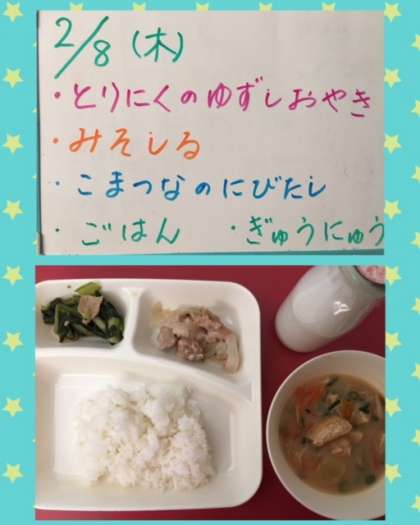 2/8(木)
・とりにくのゆずしおやき
・みそしる
・こまつなのにびたし
・ごはん ・ぎゅうにゅう